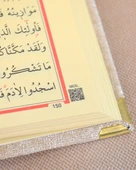 مَوَازِينُهُ
فَأُولٰٓئِكَ الَّذ
وَلَقَدْ مَكَّنَّاكُ
مَا تَشْكُرُو
اسْجُدُوا لِاٰدَمَ فَ
150